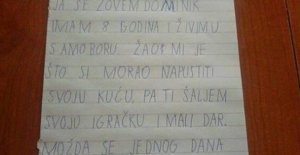 JA SE ZOVEM DOMINIK
IMAM 8 GODINA I ŽIVIM U
SAMOBORU. ŽAO MI JE
ŠTO SI MORAO NAPUSTITI
SVOJU KUĆU, PA TI ŠALJEM
SVOJU IGRAČKU I MALI DAR.
MOŽDA SE JEDNOG DANA